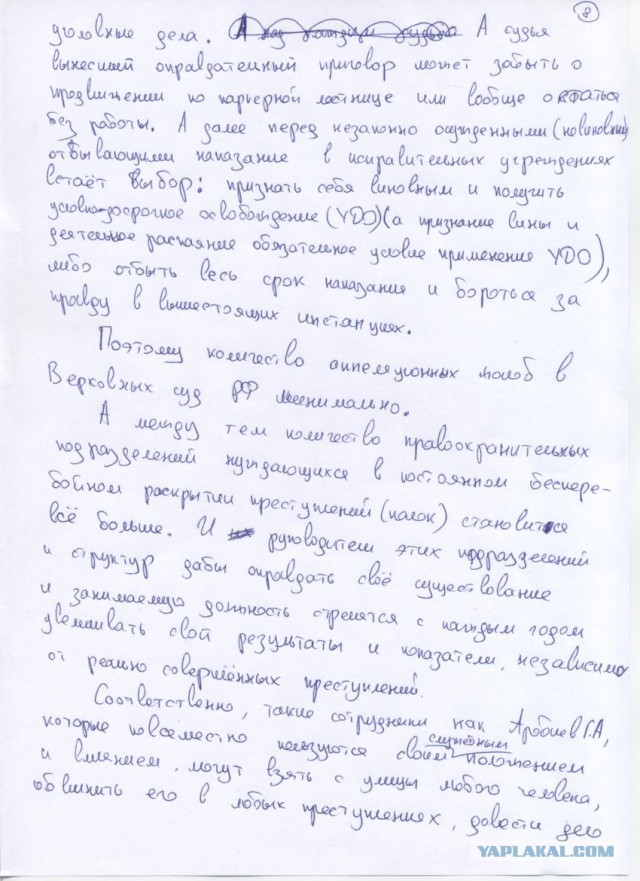 8
уголовные дела. А судья
вынесший оправдательный приговор может забыть о
продвижении по карьерной лестнице или вообще остаться
без работы. А далее перед незаконно осужденными (невиновными)
отбывающими наказание в исправительных учреждениях
встаёт выбор: признать себя виновным и получить
условно-досрочное освобождение (УДО) (а признание вины и
деятельное раскаяние обязательное условие применения УДО),
либо отбыть весь срок наказания и бороться за
правду в вышестоящих инстанциях.
Поэтому количество аппеляционных жалоб в
Верховных суд РФ минимально.
А между тем количество правоохранительных
подразделений нуждающихся в постоянном беспере-
бойном раскрытии преступлений (палок) становится
всё больше. И руководители этих подразделений
и структур дабы оправдать своё существование
и занимаемую должность стремятся с каждым годом
увеличивать свои результаты и показатели, независимо
от реально совершённых преступлений.
Соответственно, такие сотрудники как Г.А,
которые повсеместно пользуются своим служебным положением
и влиянием, могут взять с улицы любого человека,
обвинить его в любых преступлениях, довести дело
YAPLAKAL.COM